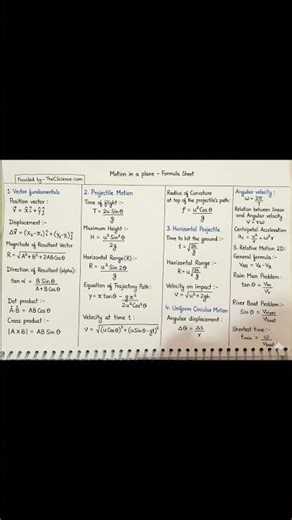 Motion in a plane - Formula Sheet
Provided by - TheCScience.com
1. Vector fundamentals
Position vector :-
r⃗ = xî + yĵ
Displacement :-
Δr⃗ = (x₂ - x₁)î + (y₂ - y₁)ĵ
Magnitude of Resultant Vector
R = √A² + B² + 2AB Cosθ
Direction of Resultant (alpha):
tan α = B Sinθ / A + B Cosθ
Dot product :-
A⃗·B⃗ = AB Cosθ
Cross product :-
|A × B| = AB Sinθ
2. Projectile Motion
Time of flight :-
T = 2u Sinθ / g
Maximum Height :-
H = u² Sin²θ / 2g
Horizontal Range(R) :-
R = u² Sin 2θ / g
Equation of Trajectory Path:
y = x tanθ - gx² / 2u² Cos²θ
Velocity at time t :-
V = √(u Cosθ)² + (u Sinθ - gt)²
Radius of Curvature
at top of the projectile's path:
r = u² Cosθ / g
3. Horizontal Projectile
Time to hit the ground :-
t = √2h/g
Horizontal Range :-
R = u√2h/g
Velocity on impact :-
V = √u² + 2gh
4. Uniform Circular Motion
Angular displacement :-
Δθ = Δs / r
Angular velocity :-
ω = 2π / T
Relation between linear
and Angular velocity
V = rω
Centripetal Acceleration
a = v²/r = ω²r
5. Relative Motion 2D:
General formula :-
Rain Man Problem :-
River Boat Problem :-
Sinθ = Vriver / Vboat
Shortest time :-
tmin = w / Vboat